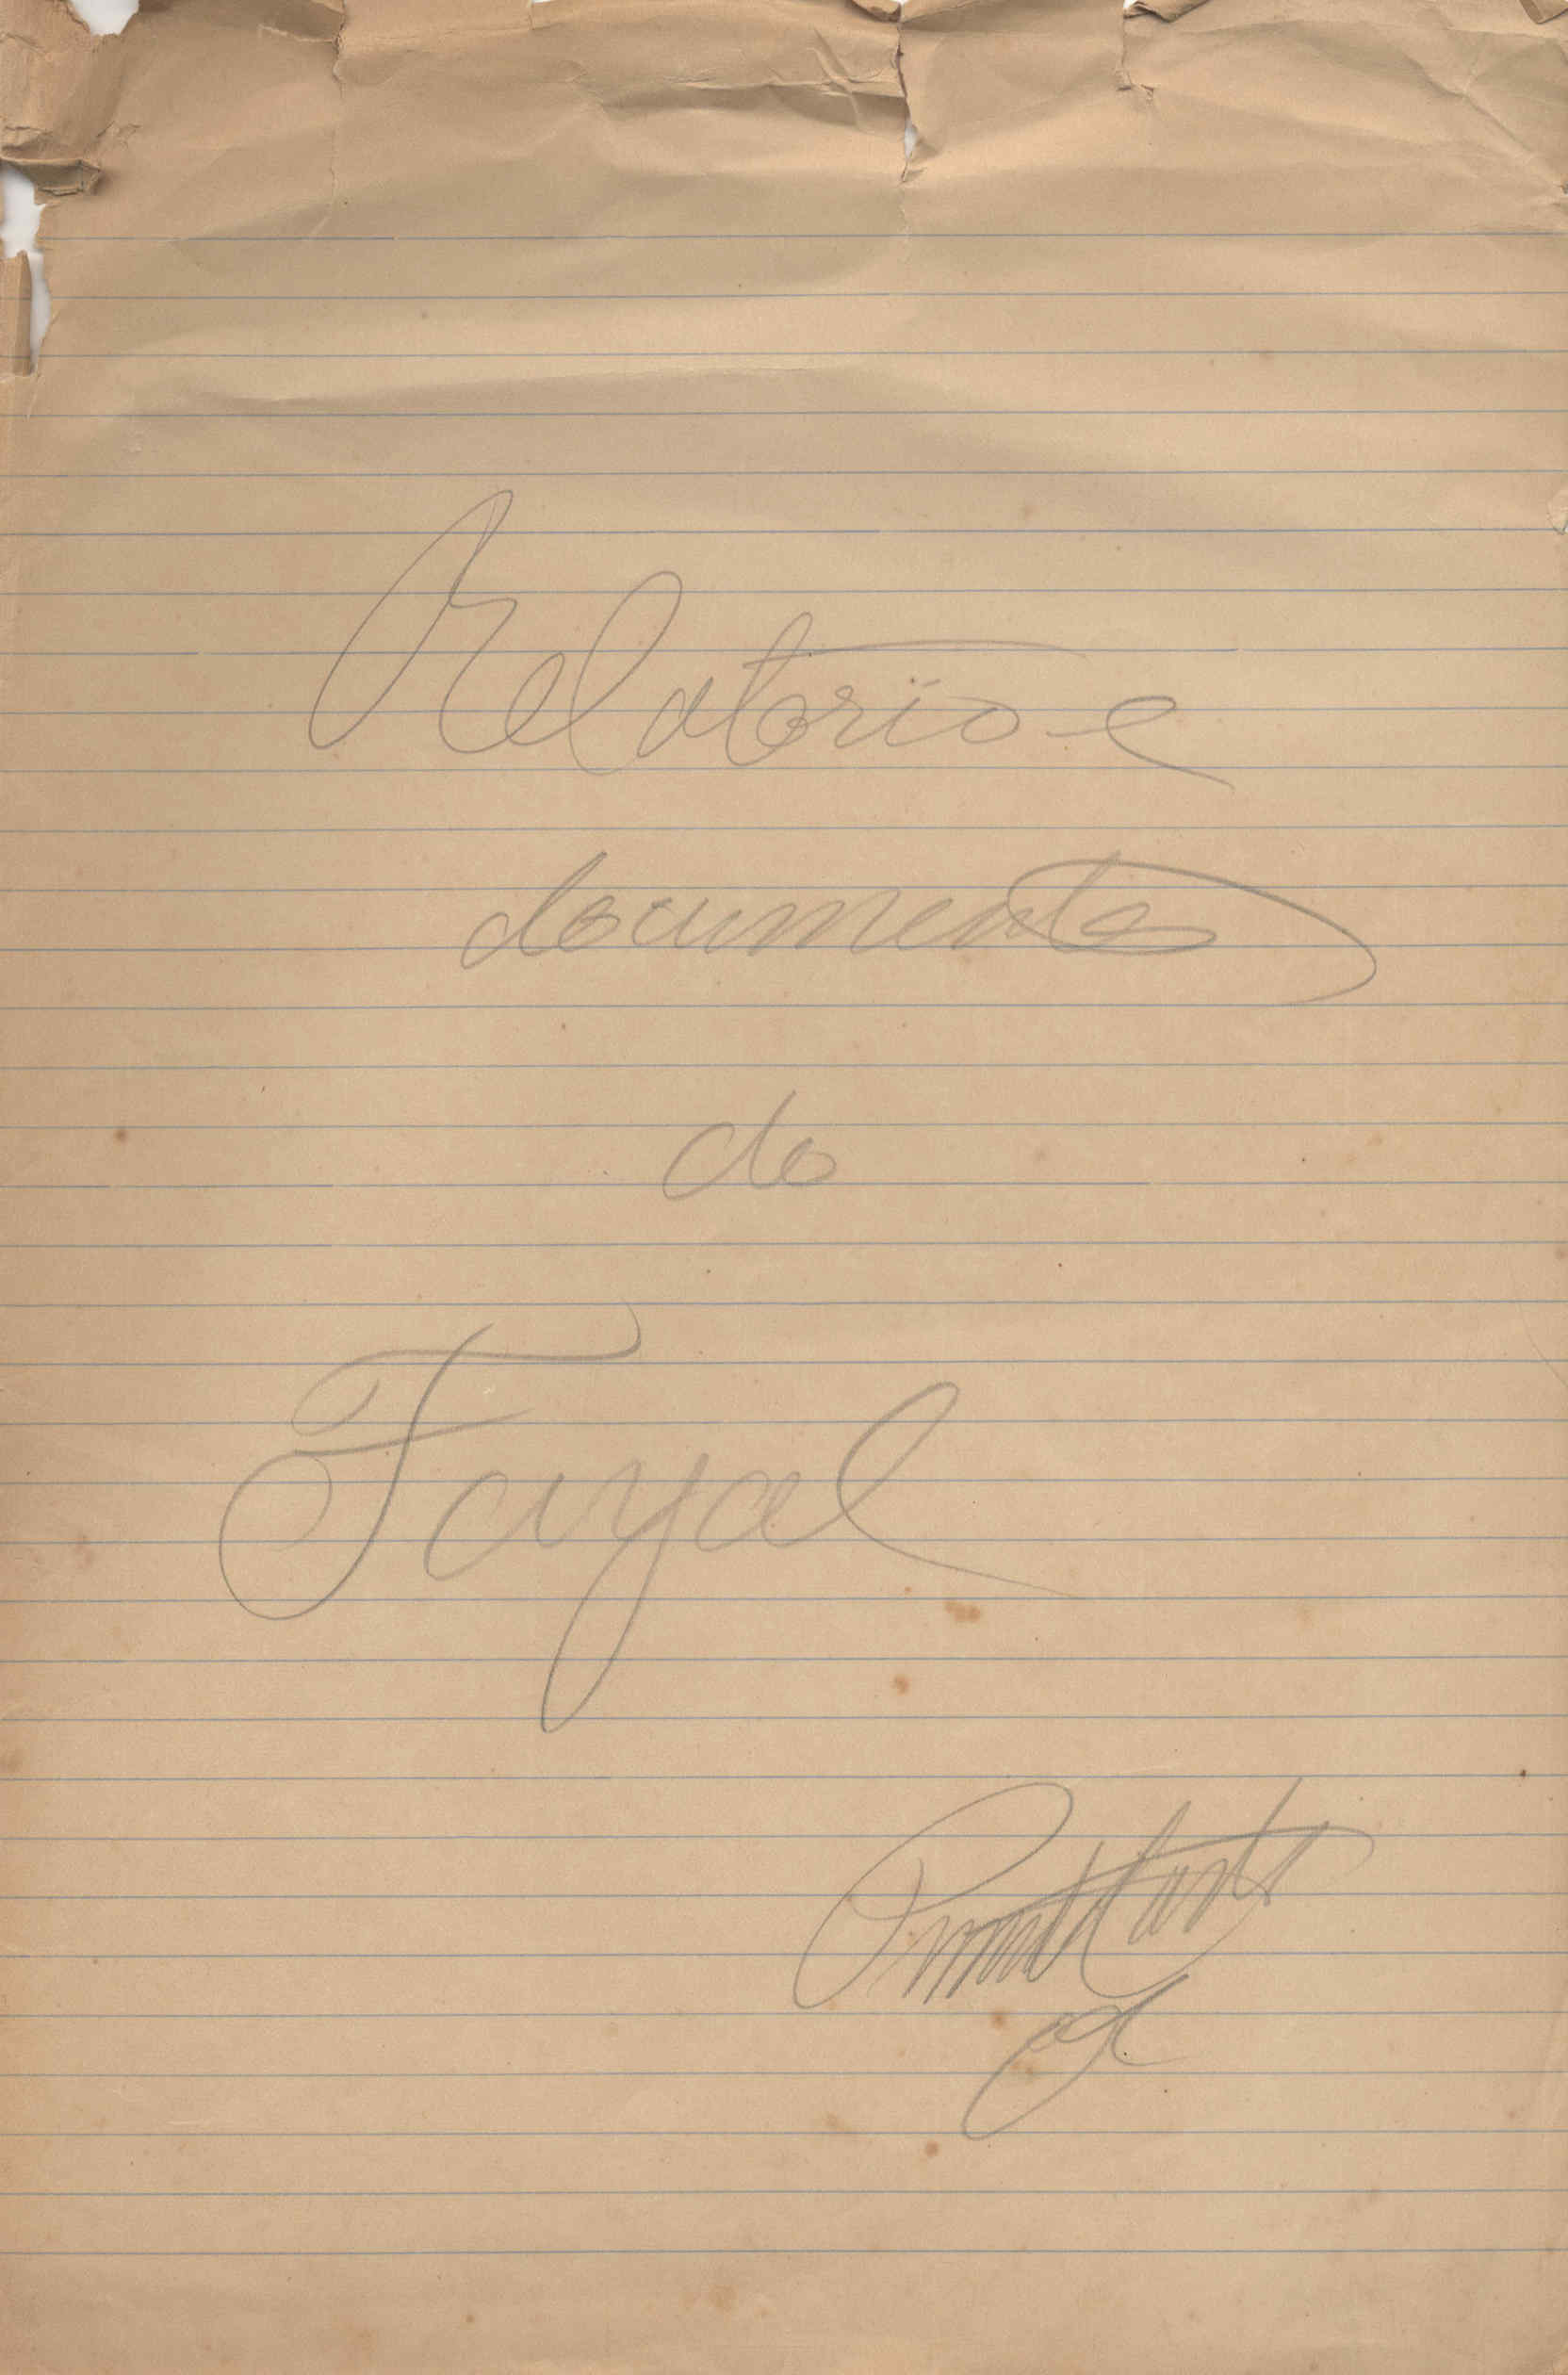 Relatorio e
documentos
do
Fayal